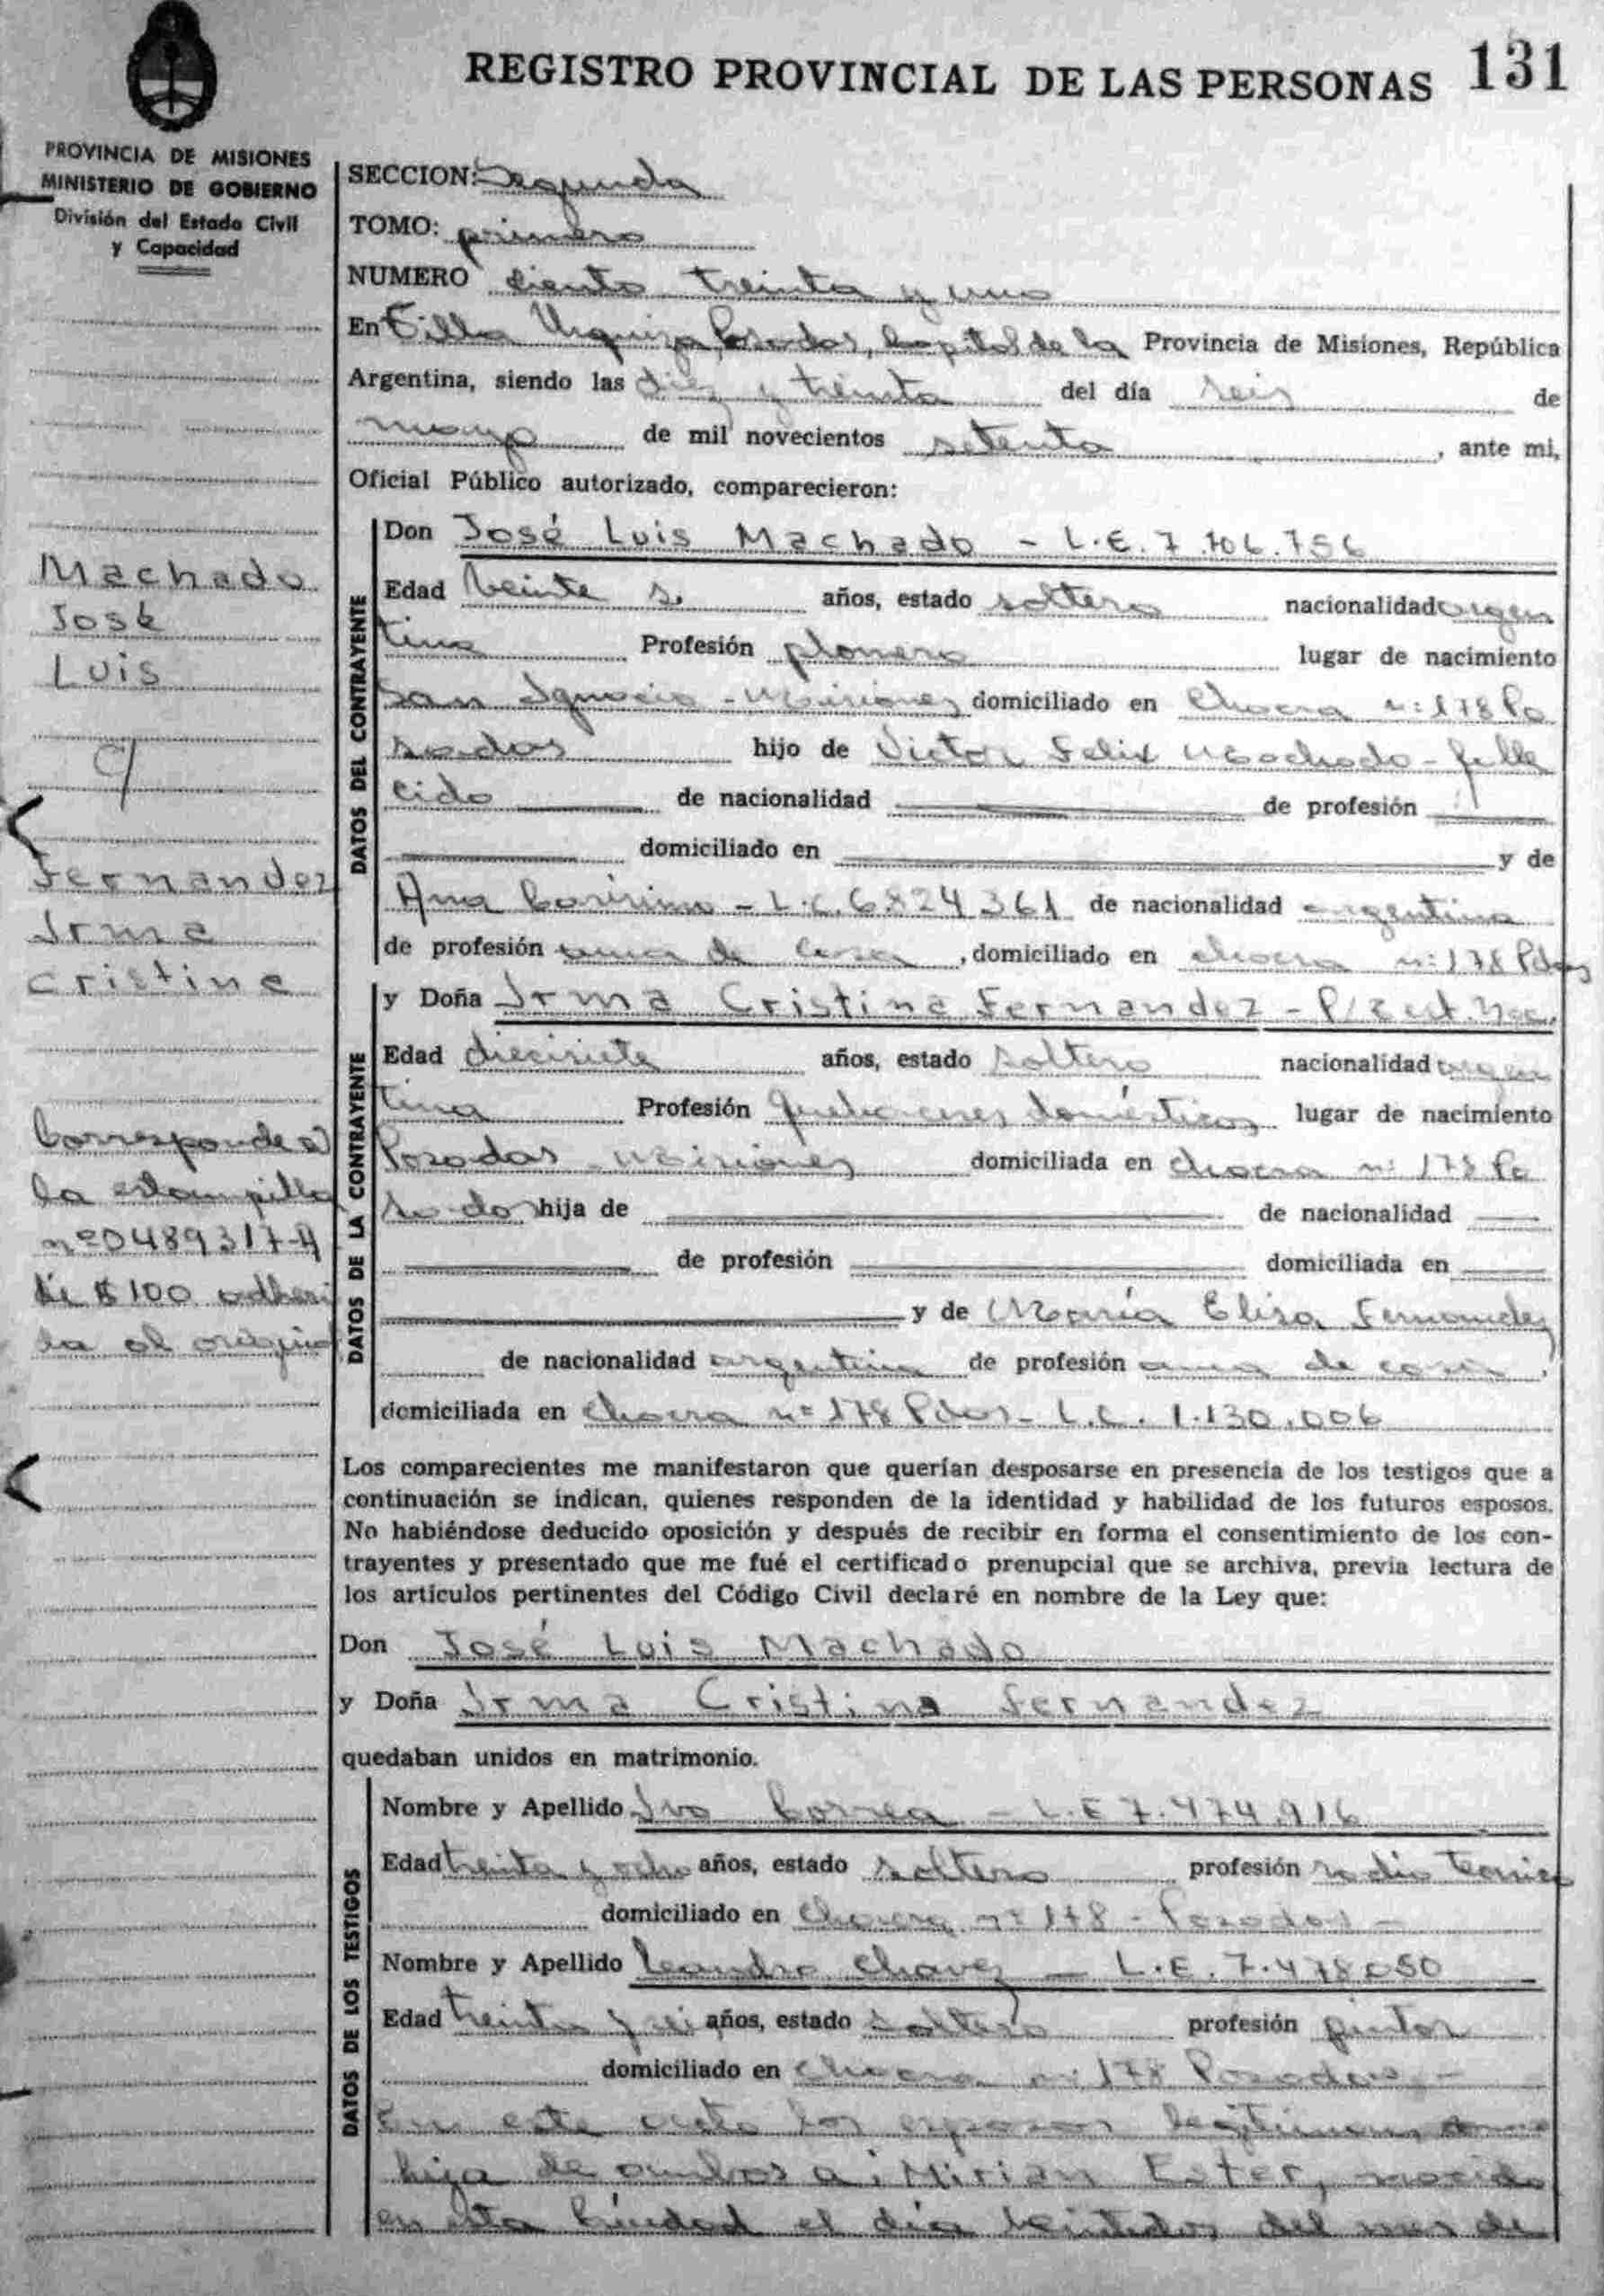 REGISTRO PROVINCIAL DE LAS PERSONAS 131
PROVINCIA DE MISIONES
MINISTERIO DE GOBIERNO
División del Estado Civil
y Capacidad
Machado
José
Luis
c/
Fernandez
Irma
Cristina
Corresponde a
la estampilla
nº0489317-A
de $100 adheri
da al original
SECCION: Segunda
TOMO: primero
NUMERO ciento treinta y uno
En Villa Urquiza, Posadas, Capital de la Provincia de Misiones, República
Argentina, siendo las diez y treinta del día seis de
mayo de mil novecientos setenta, ante mi,
Oficial Público autorizado, comparecieron:
DATOS DEL CONTRAYENTE
Don José Luis Machado - L.E. 7.706.756
Edad veinte años, estado soltero nacionalidad argen
tina Profesión plomero lugar de nacimiento
San Ignacio - Misiones domiciliado en Chacra nº 178 Po
sadas hijo de Victor Felix Machado - falle
cido de nacionalidad de profesión
domiciliado en y de
Ana - L.C. 6.824.361 de nacionalidad argentina
de profesión ama de casa, domiciliado en chacra nº 178 Pdas
DATOS DE LA CONTRAYENTE
y Doña Irma Cristina Fernandez -
Edad diecisiete años, estado soltera nacionalidad argen
tina Profesión Quehaceres domésticos lugar de nacimiento
Posadas Misiones domiciliada en chacra nº 178 Po
sadas hija de de nacionalidad
de profesión domiciliada en
y de María Elisa Fernandez
de nacionalidad argentina de profesión ama de casa,
domiciliada en Chacra nº 178 Pdas - L.C. 1.130.006
Los comparecientes me manifestaron que querían desposarse en presencia de los testigos que a
continuación se indican, quienes responden de la identidad y habilidad de los futuros esposos.
No habiéndose deducido oposición y después de recibir en forma el consentimiento de los con-
trayentes y presentado que me fué el certificado prenupcial que se archiva, previa lectura de
los artículos pertinentes del Código Civil declaré en nombre de la Ley que:
Don José Luis Machado
y Doña Irma Cristina Fernandez
quedaban unidos en matrimonio.
DATOS DE LOS TESTIGOS
Nombre y Apellido Ivo Correa - L.E 7.474.916
Edad treinta y ocho años, estado soltero profesión radio tecnico
domiciliado en Chacra nº 178 - Posadas -
Nombre y Apellido Leandro Chavez - L.E. 7.478.050
Edad treinta y seis años, estado soltero profesión pintor
domiciliado en Chacra nº 178 Posadas -
En este acto los esposos legitiman como
hija de ambos a: Mirian Ester, nacida
en esta Ciudad el día veintidos del mes de